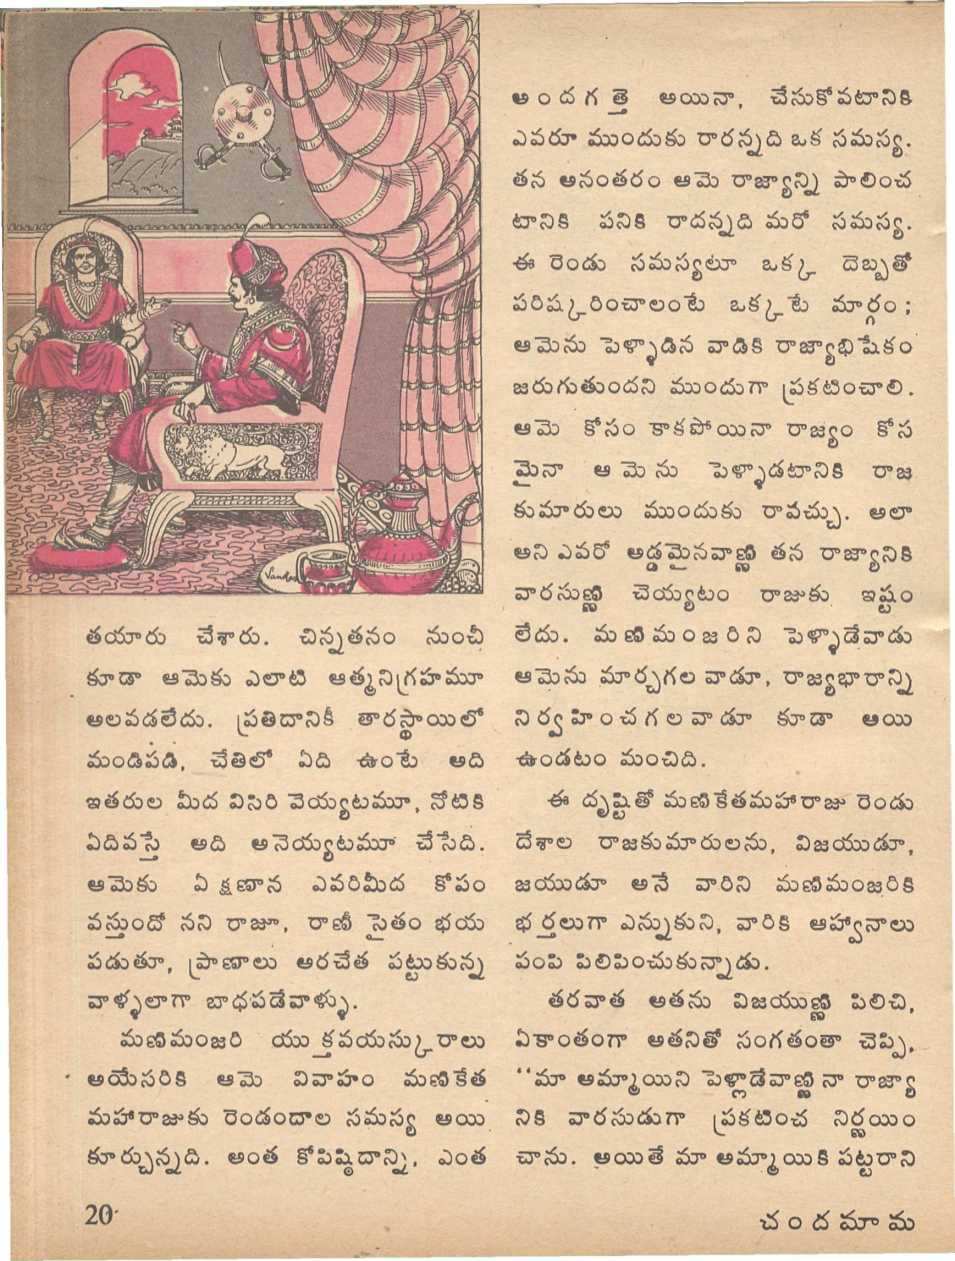 Vandos
తయారు చేశారు. చిన్నతనం నుంచీ
కూడా ఆమెకు ఎలాటి ఆత్మనిగ్రహమూ
అలవడలేదు. ప్రతిదానికీ తారస్థాయిలో
మండిపడి, చేతిలో ఏది ఉంటే అది
ఇతరుల మీద విసిరి వెయ్యటమూ, నోటికి
ఏదివస్తే అది అనెయ్యటమూ చేసేది.
ఆమెకు ఏ క్షణాన ఎవరిమీద కోపం
వస్తుందో నని రాజూ, రాణీ సైతం భయ
పడుతూ, ప్రాణాలు అరచేత పట్టుకున్న
వాళ్ళలాగా బాధపడేవాళ్ళు.
మణిమంజరి యుక్తవయస్కురాలు
అయేసరికి ఆమె వివాహం మణికేత
మహారాజుకు రెండందాల సమస్య అయి
కూర్చున్నది. అంత కోపిష్ఠిదాన్ని, ఎంత
అందగత్తె అయినా, చేసుకోవటానికి
ఎవరూ ముందుకు రారన్నది ఒక సమస్య.
తన అనంతరం ఆమె రాజ్యాన్ని పాలించ
టానికి పనికి రాదన్నది మరో సమస్య.
ఈ రెండు సమస్యలూ ఒక్క దెబ్బతో
పరిష్కరించాలంటే ఒక్కటే మార్గం;
ఆమెను పెళ్ళాడిన వాడికి రాజ్యాభిషేకం
జరుగుతుందని ముందుగా ప్రకటించాలి.
ఆమె కోసం కాకపోయినా రాజ్యం కోస
మైనా ఆమెను పెళ్ళాడటానికి రాజ
కుమారులు ముందుకు రావచ్చు. అలా
అని ఎవరో అడ్డమైనవాణ్ణి తన రాజ్యానికి
వారసుణ్ణి చెయ్యటం రాజుకు ఇష్టం
లేదు. మణిమంజరిని పెళ్ళాడేవాడు
ఆమెను మార్చగల వాడూ, రాజ్యభారాన్ని
నిర్వహించగలవాడూ కూడా అయి
ఉండటం మంచిది.
ఈ దృష్టితో మణికేతమహారాజు రెండు
దేశాల రాజకుమారులను, విజయుడూ,
జయుడూ అనే వారిని మణిమంజరికి
భర్తలుగా ఎన్నుకుని, వారికి ఆహ్వానాలు
పంపి పిలిపించుకున్నాడు.
తరవాత అతను విజయుణ్ణి పిలిచి,
ఏకాంతంగా అతనితో సంగతంతా చెప్పి,
"మా అమ్మాయిని పెళ్లాడేవాణ్ణి నా రాజ్యా
నికి వారసుడుగా ప్రకటించ నిర్ణయిం
చాను. అయితే మా అమ్మాయికి పట్టరాని
20
చందమామ